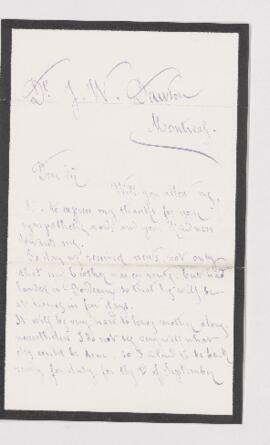 Dr. J. W. Dawson
Montreal.
Dear Sir
Will you allow me,
to express my thanks for your
sympathetic words and your kindness
towards me.
To day we received news, not only
that my brother was on his, but had
landed at Bordeaux so that he will be
at home in few days.
It will be very hard to leave mother alone
nevertheless I do not see very well what
else could be done, so I intend to be back
ready for duty for the of September